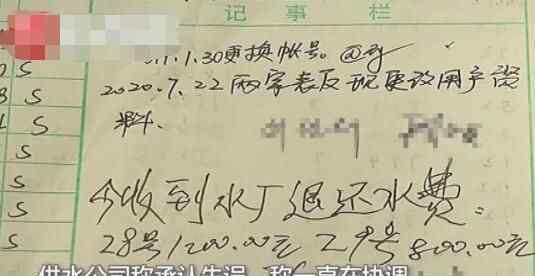 记事栏
1.30更换帐号。
2020.7.22两家表反现更改用户资
料.
今收到水厂退还水费:
28号1200.00元 29号800.00元
供水公司称承认失误,称一直在协调
S
S
S
S
S
S
S
S